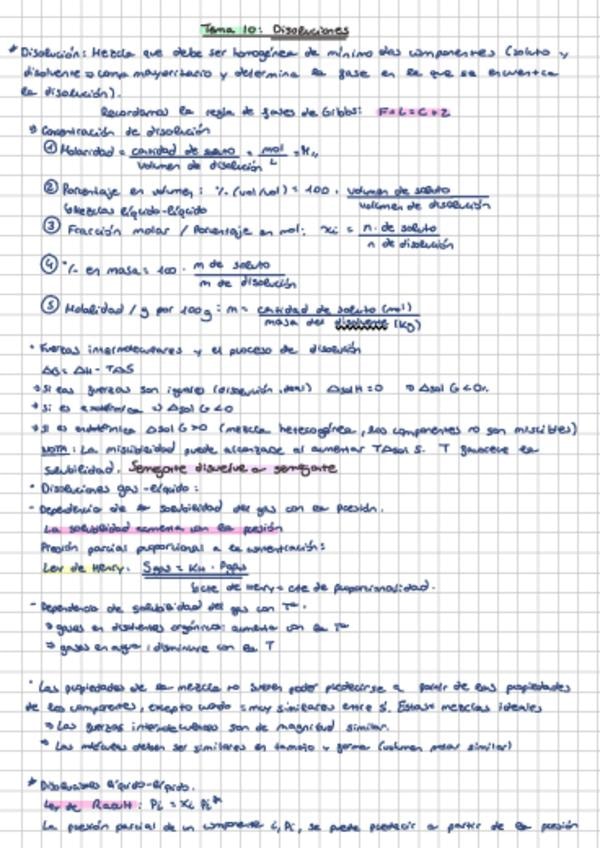 Tema 10: Disoluciones
* Disolución: Mezcla que debe ser homogénea de mínimo dos componentes (soluto y
disolvente → como mayoritario y determina la fase en la que se encuentra
la disolución).
Recordamos la regla de fases de Gibbs: F+L=C+2
⇒ Concentración de disolución
① Molaridad = cantidad de soluto / volumen de disolución = mol / L = M
② Porcentaje en volumen: % (vol/vol) = 100 · volumen de soluto / volumen de disolución
↳ Mezclas líquido-líquido
③ Fracción molar / Porcentaje en mol: xi = n. de soluto / n de disolución
④ % en masa = 100 · m de soluto / m de disolución
⑤ Molalidad / g por 100g: m = cantidad de soluto (mol) / masa del disolvente (kg)
• Fuerzas intermoleculares y el proceso de disolución
ΔG = ΔH - TΔS
→ Si las fuerzas son iguales (disolución ideal) ΔsolH = 0 ⇒ Δsol G < 0
→ Si es exotérmica ⇒ Δsol G < 0
→ Si es endotérmica Δsol G > 0 (mezcla heterogénea, los componentes no son miscibles)
NOTA: La miscibilidad puede alcanzarse al aumentar TΔsol S. T favorece la
solubilidad. Semejante disuelve a semejante
• Disoluciones gas-líquido:
- Dependencia de la solubilidad del gas con la presión.
La solubilidad aumenta con la presión
Presión parcial proporcional a la concentración:
Ley de Henry: Sgas = KH · Pgas
↳ cte de Henry = cte de proporcionalidad.
- Dependencia de solubilidad del gas con Tª.
→ gases en disolventes orgánicos: aumenta con la Tª
→ gases en agua: disminuye con la T
• Las propiedades de la mezcla no suelen poder predecirse a partir de las propiedades
de los componentes, excepto cuando son muy similares entre sí. Estas mezclas ideales
→ Las fuerzas intermoleculares son de magnitud similar.
→ Las moléculas deben ser similares en tamaño y forma (volumen molar similar)
* Disoluciones líquido-líquido.
Ley de Raoult: Pi = xi Pi*
La presión parcial de un componente i, Pi, se puede predecir a partir de la presión